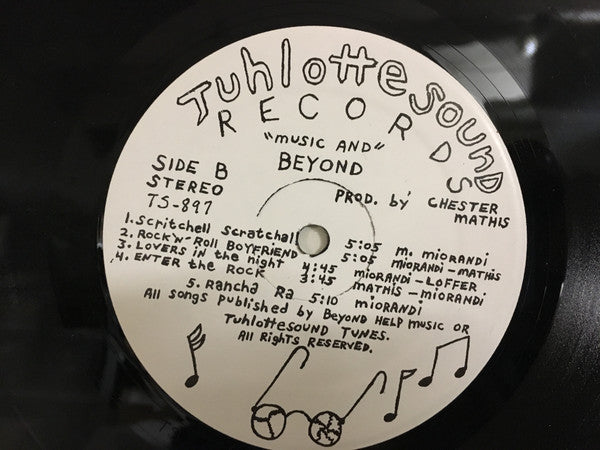 Tuhlottesound
RECORDS
"music AND"
BEYOND
SIDE B
STEREO
TS-897
PROD. by' CHESTER
MATHIS
1. Scritchell scratchall 5:05 M. MiORANDi
2. ROCK'N' Roll BOYFRIEND 5:05 MiORANDi-MATHIS
3. LOVERS iN the Night 4:45 MiORANDi-LOFFER
4. ENTER the ROCK 3:45 MATHIS-MiORANDi
5. Rancha Ra 5:10 MiORANDi
All songs published by BEYOND HELP MUSIC OR
TuhlotteSOUND TUNES.
All RighTS RESERVED.